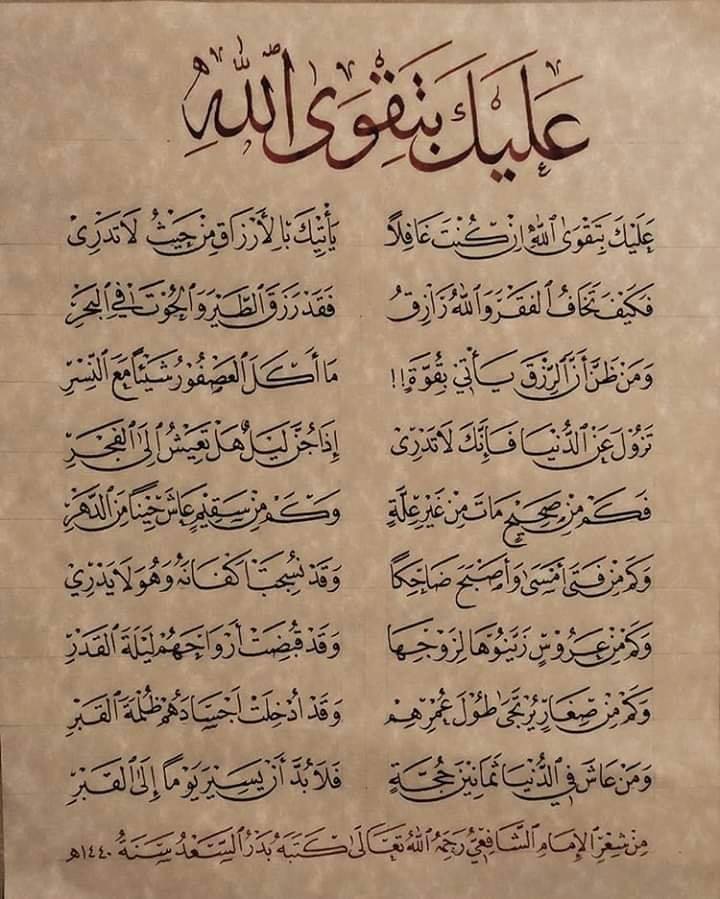 عَلَيْكَ بِتَقْوَى اللهِ
عَلَيْكَ بِتَقْوَى اللهِ إِنْ كُنْتَ غَافِلاً يَأْتِيكَ بِالأَرْزَاقِ مِنْ حَيْثُ لَا تَدْرِي
فَكَيْفَ تَخَافُ الفَقْرَ وَاللهُ رَازِقٌ فَقَدْ رَزَقَ الطَّيْرَ وَالحُوتَ فِي البَحْرِ
وَمَنْ ظَنَّ أَنَّ الرِّزْقَ يَأْتِي بِقُوَّةٍ!! مَا أَكَلَ العُصْفُورُ شَيْئاً مَعَ النَّسْرِ
تَزُولُ عَنِ الدُّنْيَا فَإِنَّكَ لَا تَدْرِي إِذَا جُنَّ لَيْلٌ هَلْ تَعِيشُ إِلَى الفَجْرِ
فَكَمْ مِنْ صَحِيحٍ مَاتَ مِنْ غَيْرِ عِلَّةٍ وَكَمْ مِنْ سَقِيمٍ عَاشَ حِيناً مِنَ الدَّهْرِ
وَكَمْ مِنْ فَتًى أَمْسَى وَأَصْبَحَ ضَاحِكاً وَقَدْ نُسِجَتْ أَكْفَانُهُ وَهُوَ لَا يَدْرِي
وَكَمْ مِنْ عَرُوسٍ زَيَّنُوهَا لِزَوْجِهَا وَقَدْ قُبِضَتْ أَرْوَاحُهُمْ لَيْلَةَ القَدْرِ
وَكَمْ مِنْ صِغَارٍ يُرْتَجَى طُولُ عُمْرِهِمْ وَقَدْ أُدْخِلَتْ أَجْسَادُهُمْ ظُلْمَةَ القَبْرِ
وَمَنْ عَاشَ فِي الدُّنْيَا ثَمَانِينَ حِجَّةٍ فَلَا بُدَّ أَنْ يَسِيرَ يَوْماً إِلَى القَبْرِ
مِنْ شِعْرِ الإِمَامِ الشَّافِعِيِّ رَحِمَهُ اللهُ تَعَالَى كَتَبَهُ بَدْرُ السَّعْدُ سَنَةُ ١٤٤٠هـ